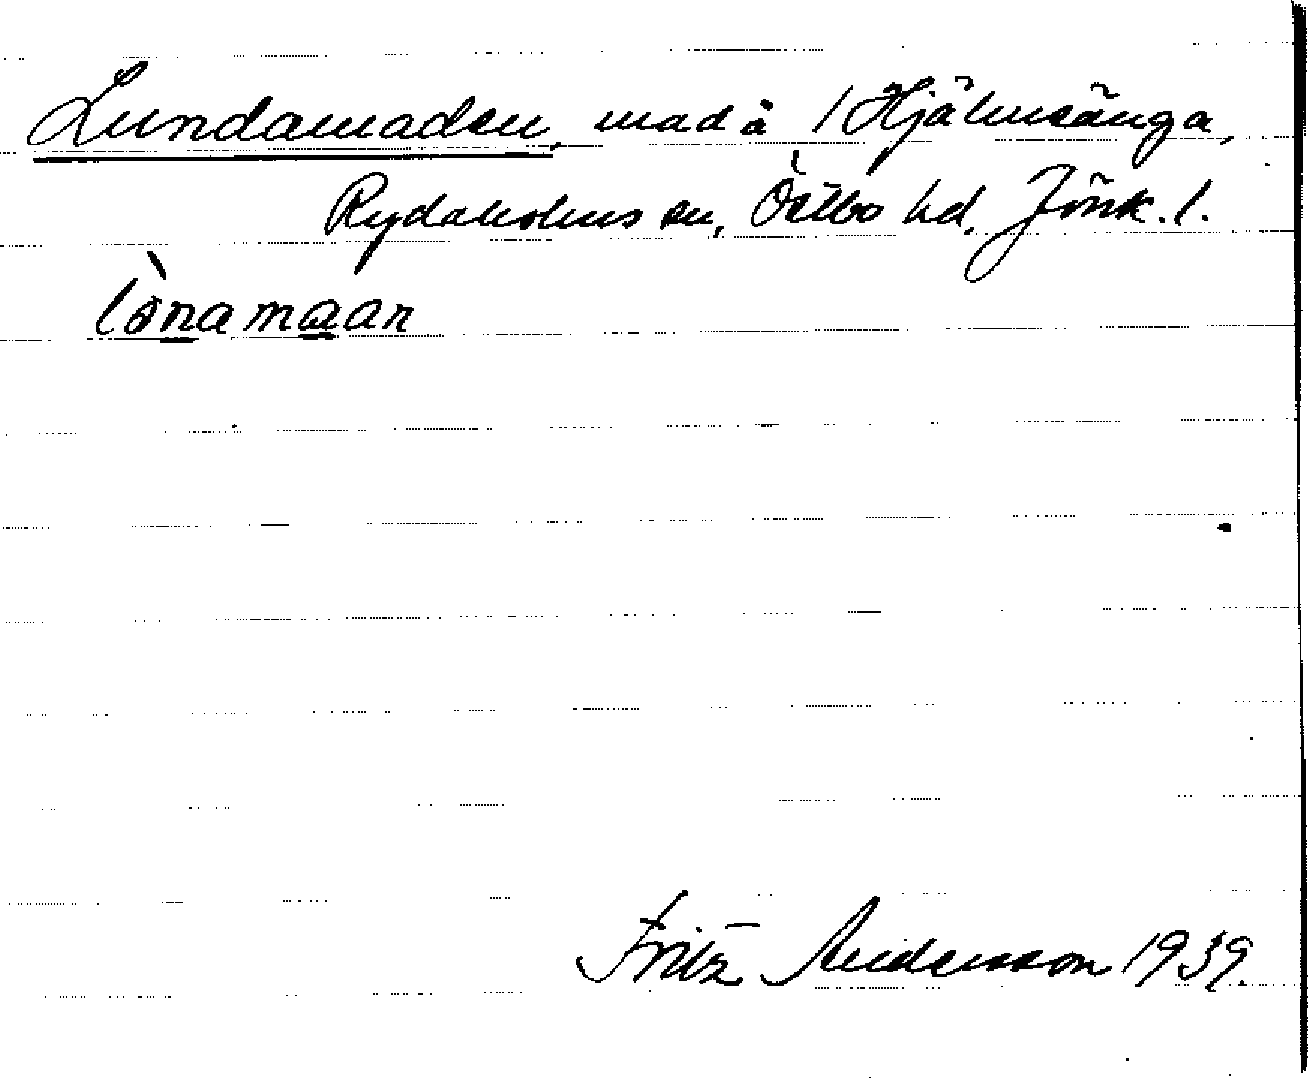 Lundamaden, mad å 1 Hjälmsänga,
Rydaholms sn, Östbo hd, Jönk. l.
lònamaan
Fritz Andersson 1939.